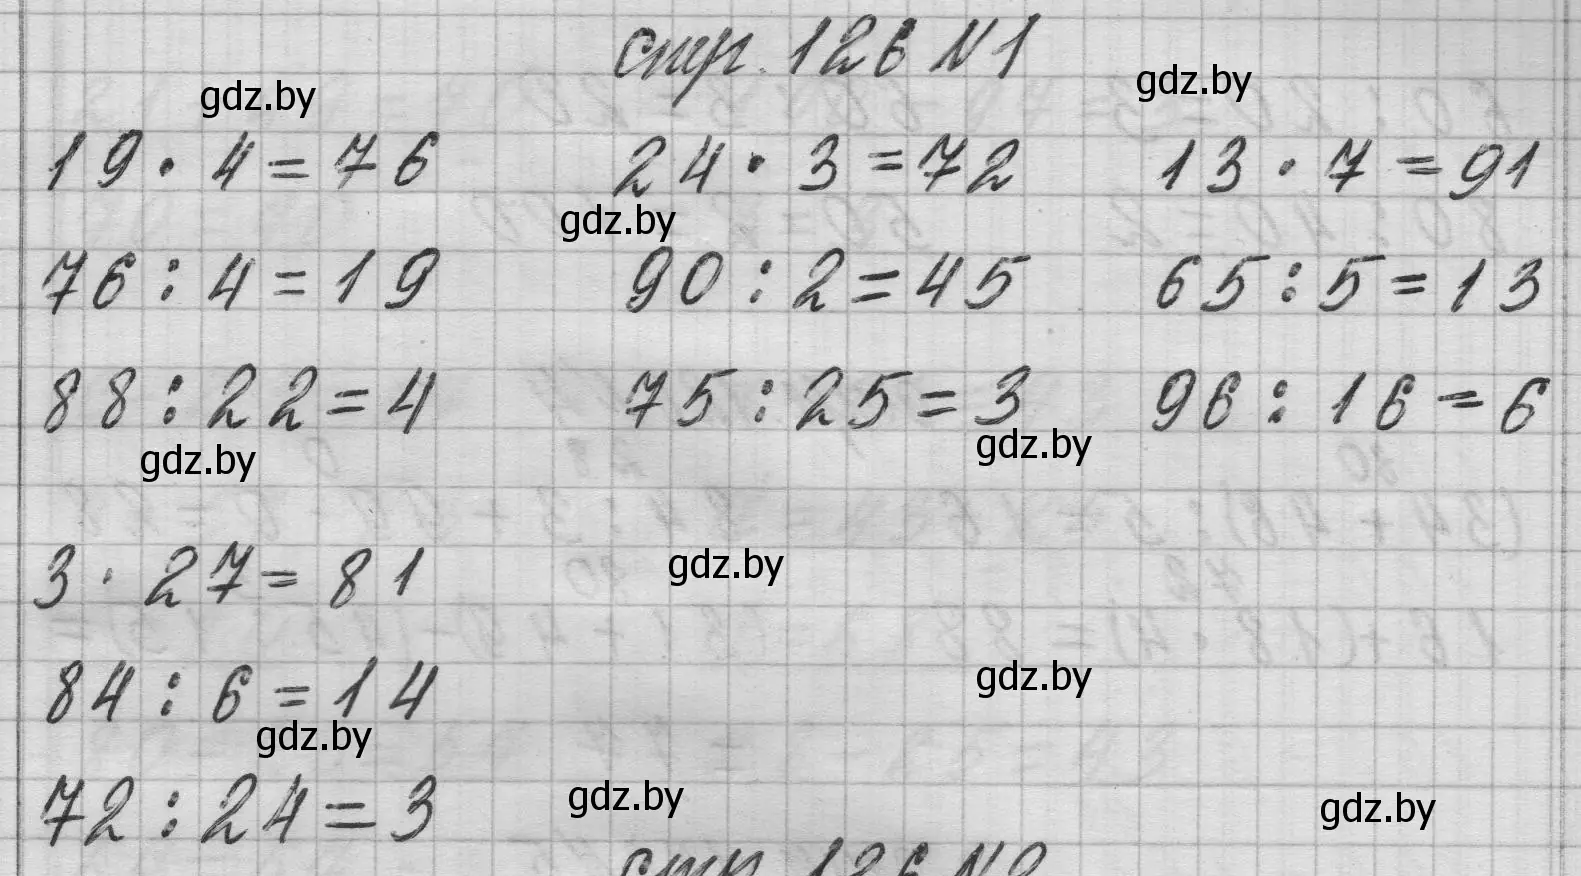 стр. 126 N1
gdz.by gdz.by
19 · 4 = 76 24 · 3 = 72 13 · 7 = 91
gdz.by
76 : 4 = 19 90 : 2 = 45 65 : 5 = 13
88 : 22 = 4 75 : 25 = 3 96 : 16 = 6
gdz.by gdz.by
3 · 27 = 81
gdz.by
84 : 6 = 14
gdz.by
gdz.by
72 : 24 = 3
gdz.by gdz.by
стр. 126 N2